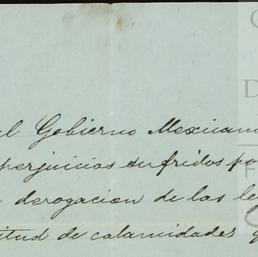 al Gobierno Mexicano
perjuicios sufridos po
derogacion de las le
titud de calamidades q